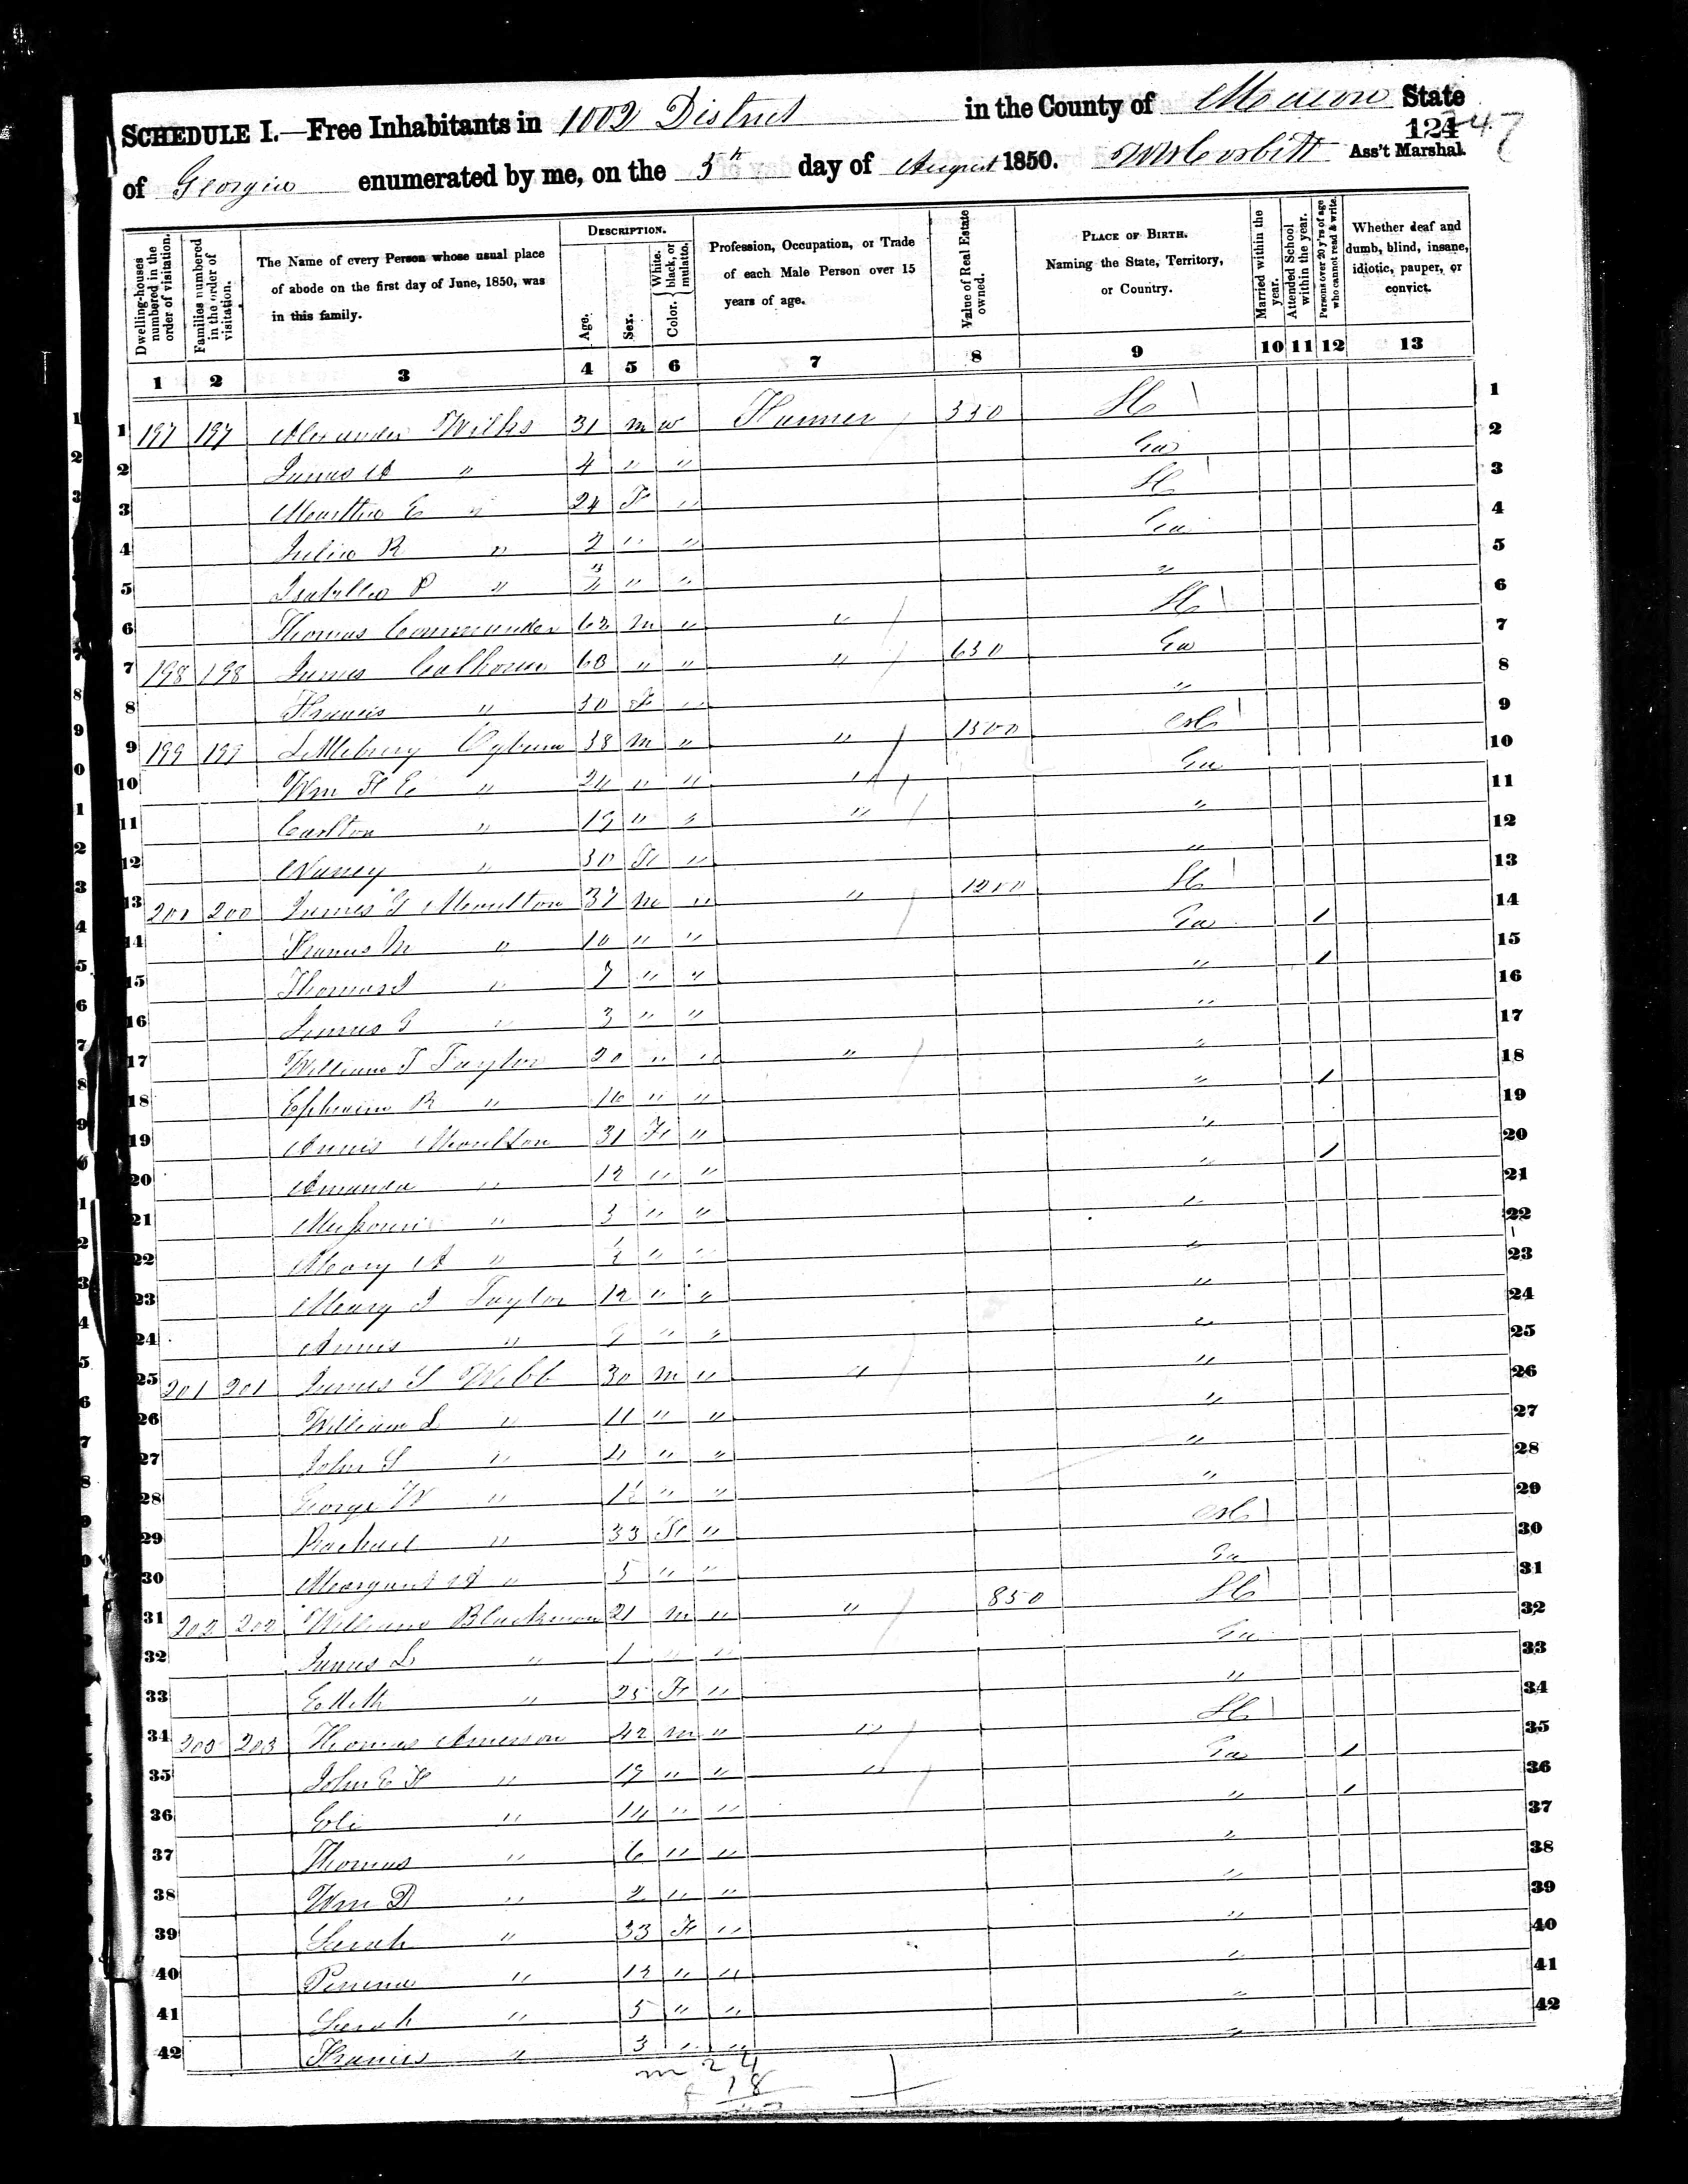 SCHEDULE I.—Free Inhabitants in 1002 District in the County of Macon State
124 247
of Georgia enumerated by me, on the 5th day of August 1850. Ass't Marshal.
Dwelling-houses numbered in the order of visitation.
Families numbered in the order of visitation.
The Name of every Person whose usual place of abode on the first day of June, 1850, was in this family.
DESCRIPTION.
Age.
Sex.
Color. { White. black, or mulatto.
Profession, Occupation, or Trade of each Male Person over 15 years of age.
Value of Real Estate owned.
PLACE OF BIRTH. Naming the State, Territory, or Country.
Married within the year.
Attended School within the year.
Persons over 20 y'rs of age who cannot read & write.
Whether deaf and dumb, blind, insane, idiotic, pauper, or convict.
1 2 3 4 5 6 7 8 9 10 11 12 13
1 197 197 Alexander Wilks 31 m w Farmer 350 SC 1
2 James A " 4 " " Ga 2
3 Martha E " 24 F " SC 3
4 Julia R " 2 " " Ga 4
5 Isabella P " " " " 5
6 Thomas Commander 62 m " " SC 6
7 198 198 James Calhoun 63 " " " 650 Ga 7
8 Francis " 50 F " " 8
9 199 199 Littlebury Ogburn 58 m " " 1500 NC 9
10 Wm F E " 24 " " " Ga 10
11 Carlton " 19 " " " " 11
12 Nancy " 50 F " " 12
13 200 200 James G Moulton 37 m " " 1200 SC 13
14 Francis M " 10 " " Ga / 14
15 Thomas J " 7 " " " / 15
16 James G " 3 " " " 16
17 William T Taylor 20 " " " " 17
18 Ephraim R " 16 " " " / 18
19 Annis Moulton 31 F " " 19
20 Amanda " 12 " " " / 20
21 " 5 " " " 21
22 Mary A " " " " 22
23 Mary J Taylor 12 " " " 23
24 Annis " " " " 24
25 201 201 James S Webb 30 m " " " 25
26 William L " 11 " " " 26
27 John S " 4 " " " 27
28 George W " " " " 28
29 Rachael " 33 F " NC 29
30 Margaret A " 5 " " Ga 30
31 202 202 William Blackmon 21 m " " 850 SC 31
32 James L " 1 " " Ga 32
33 Edith " 25 F " " 33
34 203 203 Thomas Amerson 42 m " " SC 34
35 John E F " 19 " " " Ga / 35
36 Eli " 14 " " " / 36
37 Thomas " 6 " " " 37
38 Wm D " 2 " " " 38
39 Sarah " 33 F " " 39
40 Penina " 12 " " " 40
41 Sarah " 5 " " " 41
42 Francis " 3 " " " 42
m 24
f 18